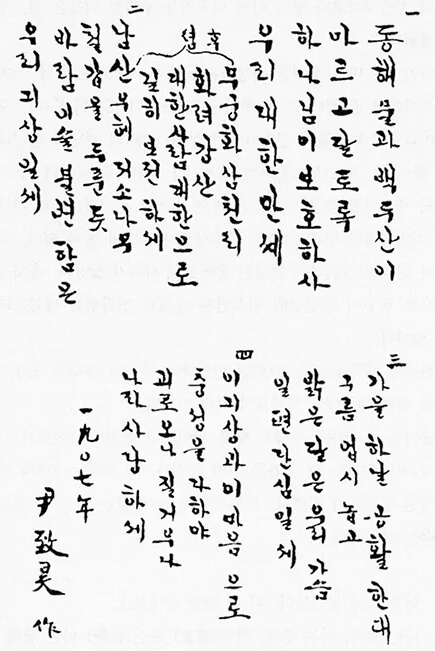 一
동해물과 백두산이
마르고 달토록
하나님이 보호하사
우리 대한 만세
후렴
무궁화 삼천리
화려강산
대한사람 대한으로
길히 보전하세
二
남산우헤 저소나무
철갑을 두룬듯
바람이슬 불변함은
우리긔상일세
三
가을하날 공활한대
구름업시 놉고
밝은달은 우리가슴
일편단심일세
四
이긔상과 이마음으로
충성을 다하야
괴로오나 질거우나
나라사랑하세
一九〇七年
尹致昊 作